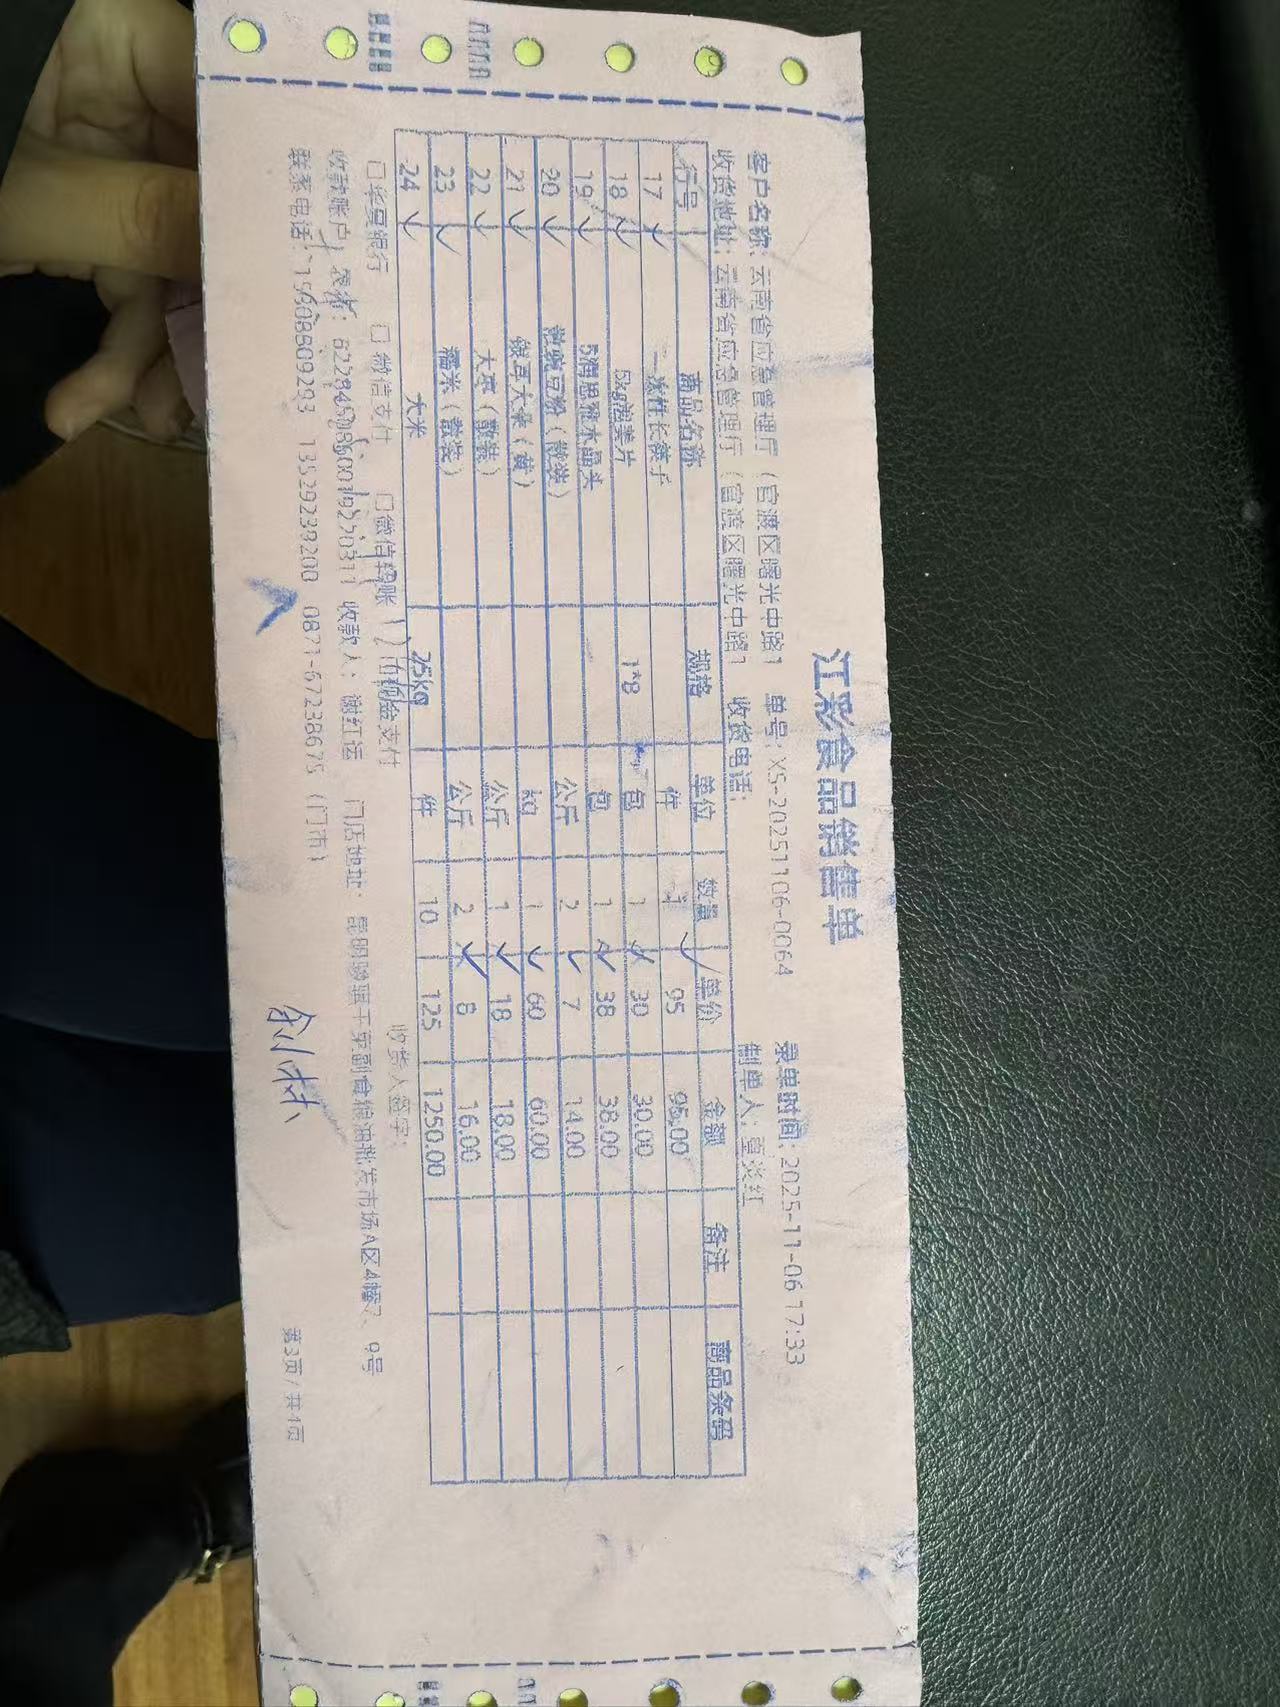 江彩食品销售单
客户名称: 云南省应急管理厅（官渡区曙光中路1 单号: XS-20251106-0064 录单时间: 2025-11-06 17:33
收货地址: 云南省应急管理厅（官渡区曙光中路1 收货电话: 制单人:
行号 商品名称 规格 单位 数量 单价 金额 备注 商品条码
17 一次性长筷子 件 1 95 95.00
18 5kg泡姜片 1*8 包 1 30 30.00
19 包 1 38 38.00
20 豌豆粉（散装） 公斤 2 7 14.00
21 银耳大朵（黄） kg 1 60 60.00
22 大枣（散装） 公斤 1 18 18.00
23 糯米（散装） 公斤 2 8 16.00
24 大米 25kg 件 10 125 1250.00
□华夏银行 □微信支付 □微信转账 现金支付 收货人签字:
收款账户 收款人: 谢红运 门店地址: 干菜副食粮油批发市场A区4幢7、9号
联系电话: 15908809293 13529239200 0871-67238675（门市）
第3页/共4页